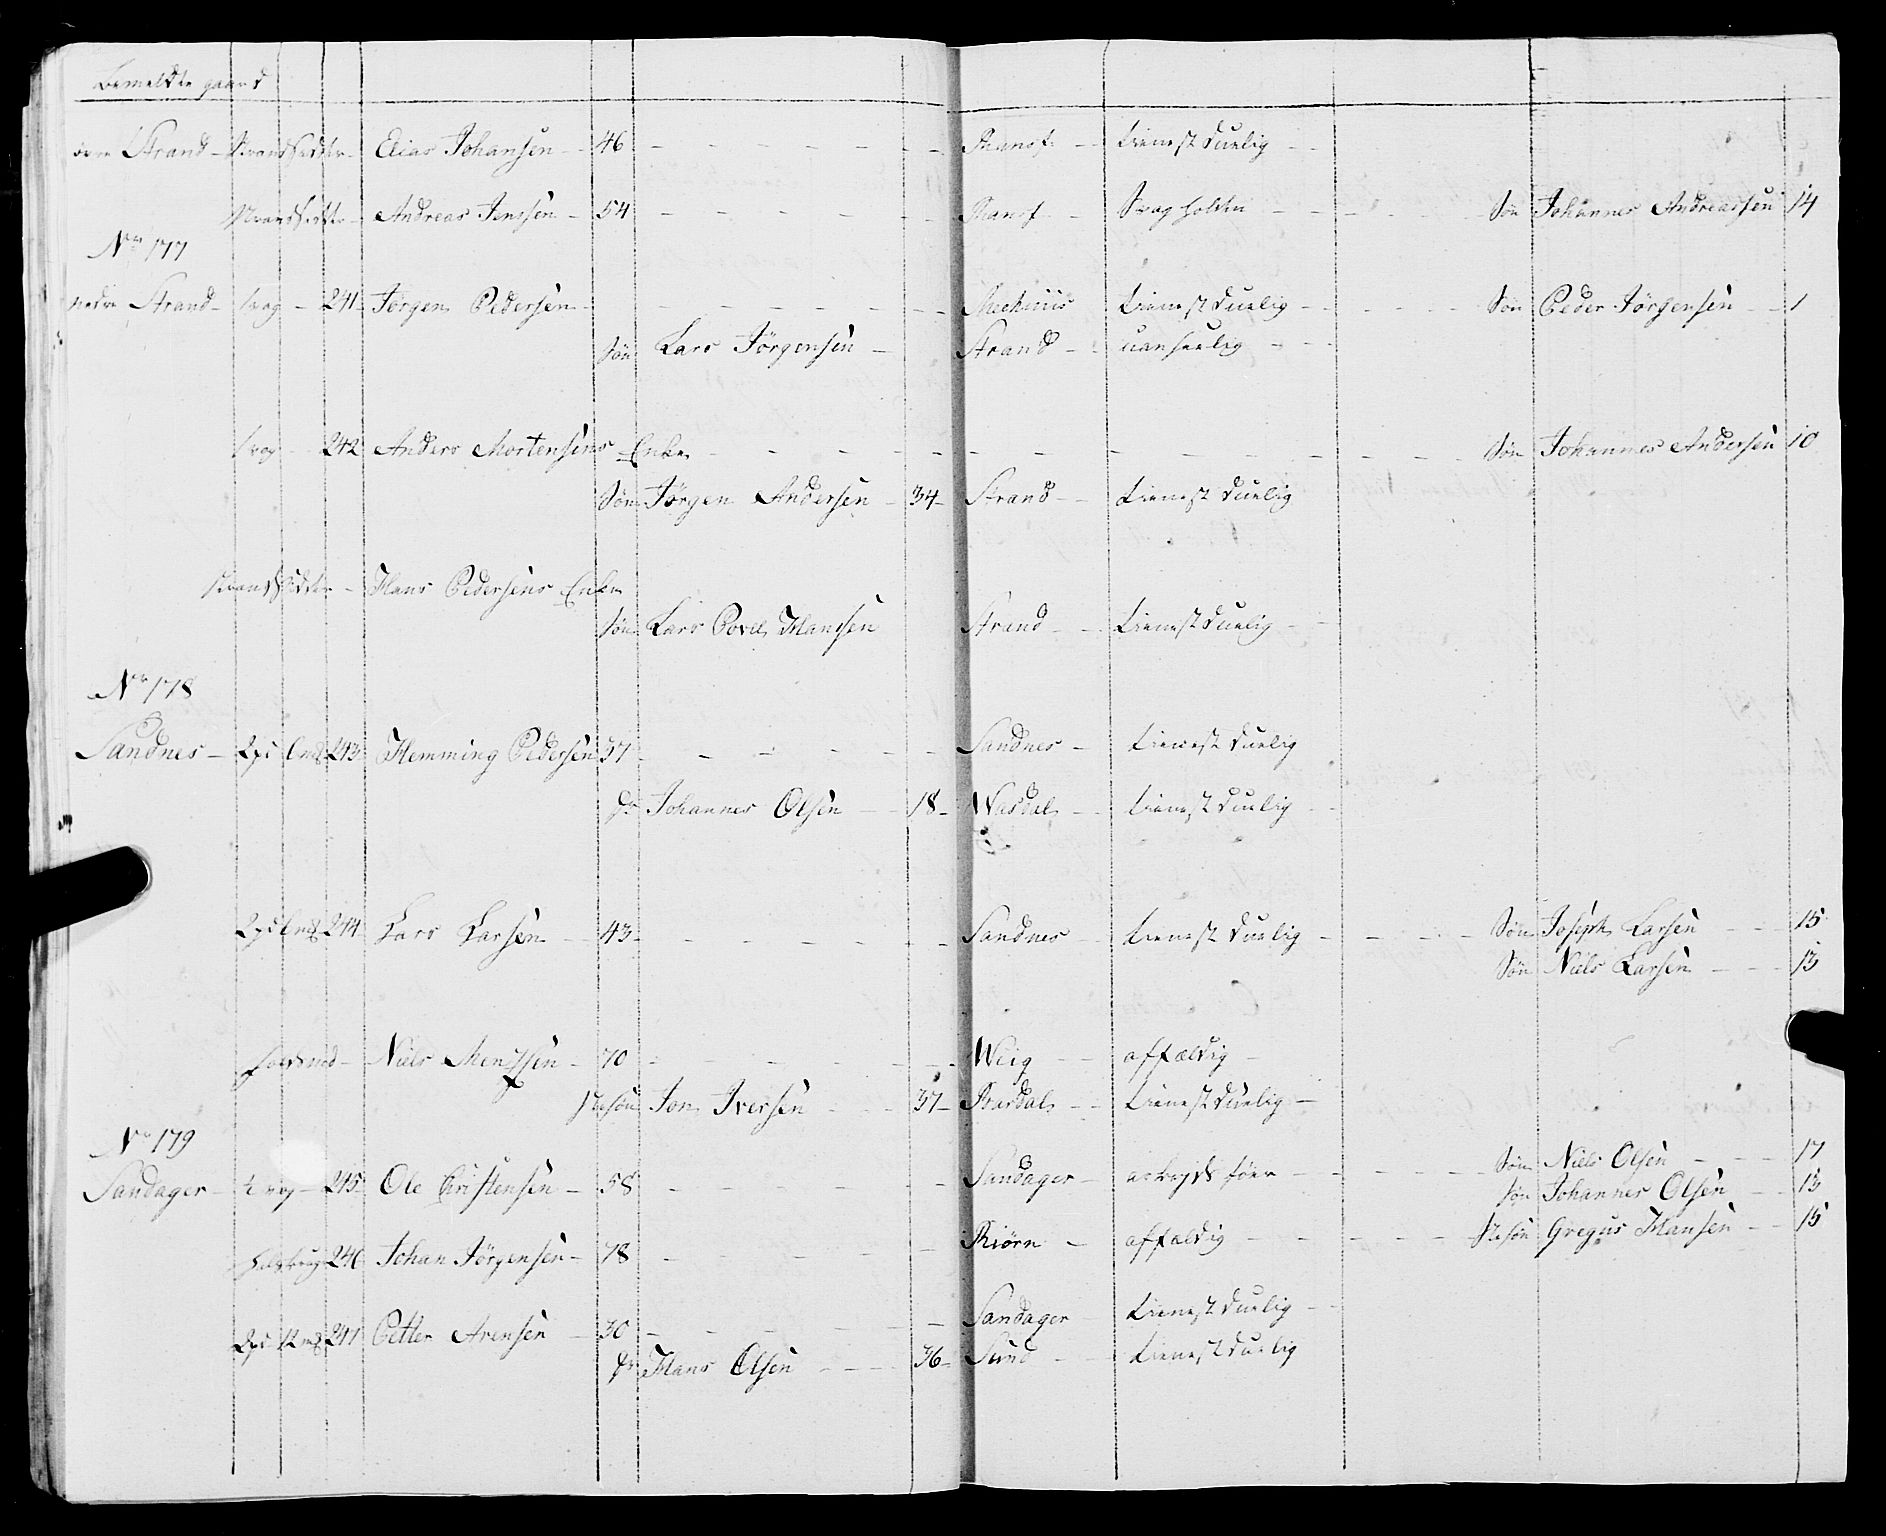 Bemeldte gaard
øvre Strand Strandsidder Elias Johansen 46 Ranof tienestduelig
Strandsidder Andreas Jenssen 54 Ranof Svag Søn Johannes Andreassen 14
No 177
nedre Strand 1 vog 241 Jørgen Pedersen tienestduelig Søn Peder Jørgensen 1
Søn Lars Jørgensen Strand
1 vog 242 Anders Mortensens Enke Søn Johannes Andersen 10
Søn Jørgen Andersen 34 Strand tienestduelig
Strandsidder Hans Pedersens Enke
Søn Lars Povel Hansen Strand tienestduelig
No 178
Sandnes 243 Hemming Pedersen 37 Sandnes tienestduelig
dr Johannes Olsen 18 tienestduelig
244 Lars Larsen 43 Sandnes tienestduelig Søn Joseph Larsen 15
Søn Niels Larsen 13
Niels 70 affældig
Stesøn Jon Iversen 37 tienestduelig
No 179
Sandager 245 Ole Christensen 58 Sandager arbejds før Søn Niels Olsen 17
Søn Johannes Olsen 13
246 Johan Jørgensen 78 affældig Stesøn Gregus Hansen 15
247 Petter Arensen 30 Sandager tienestduelig
dr Hans Olsen 36 Sund tienestduelig